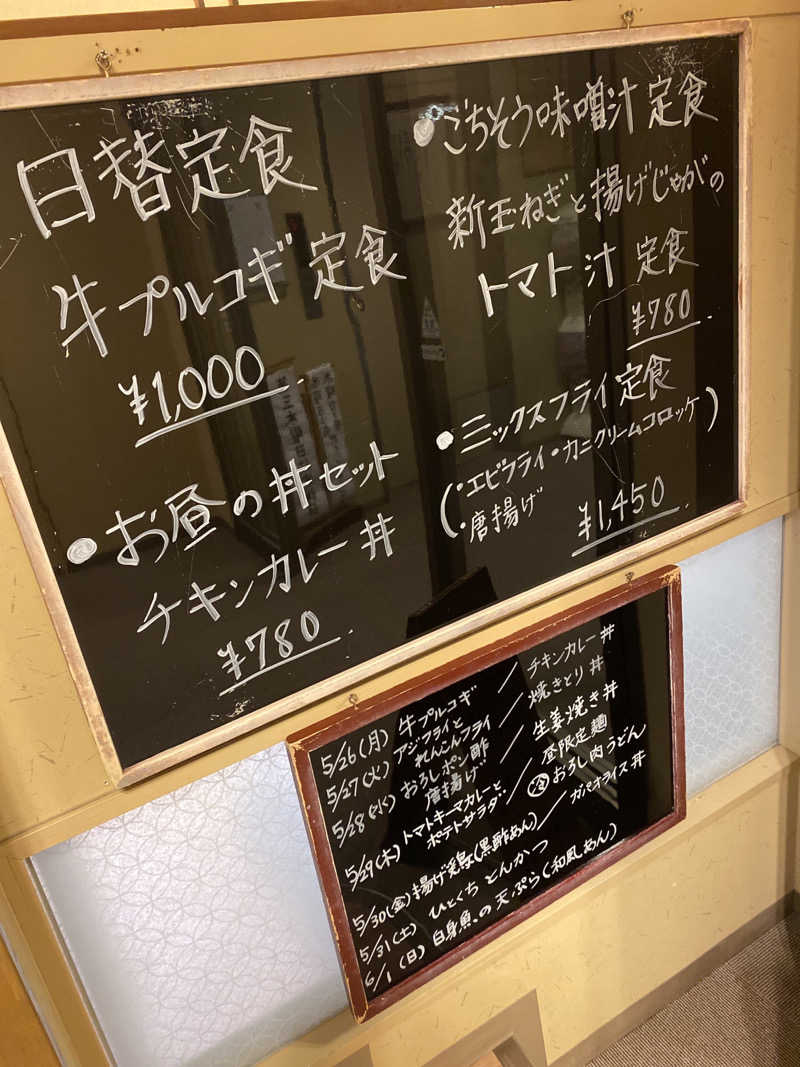 日替定食
牛プルコギ定食
¥1,000
・お昼の丼セット
チキンカレー丼
¥780
・ごちそう味噌汁定食
新玉ねぎと揚げじゃがの
トマト汁 定食
¥780
・ミックスフライ定食
(・エビフライ・カニクリームコロッケ)
・唐揚げ
¥1,450
5/26(月) 牛プルコギ / チキンカレー丼
5/27(火) アジフライと / 焼きとり丼
れんこんフライ
5/28(水) おろしポン酢 / 生姜焼き丼
唐揚げ
5/29(木) トマトキーマカレーと / 昼限定麺
ポテトサラダ 冷おろし肉うどん
5/30(金) 揚げ鶏(黒酢あん) / ガパオライス丼
5/31(土) ひとくちとんかつ
6/1(日) 白身魚の天ぷら(和風あん)